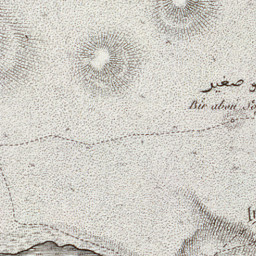 و صغير
Bir abou